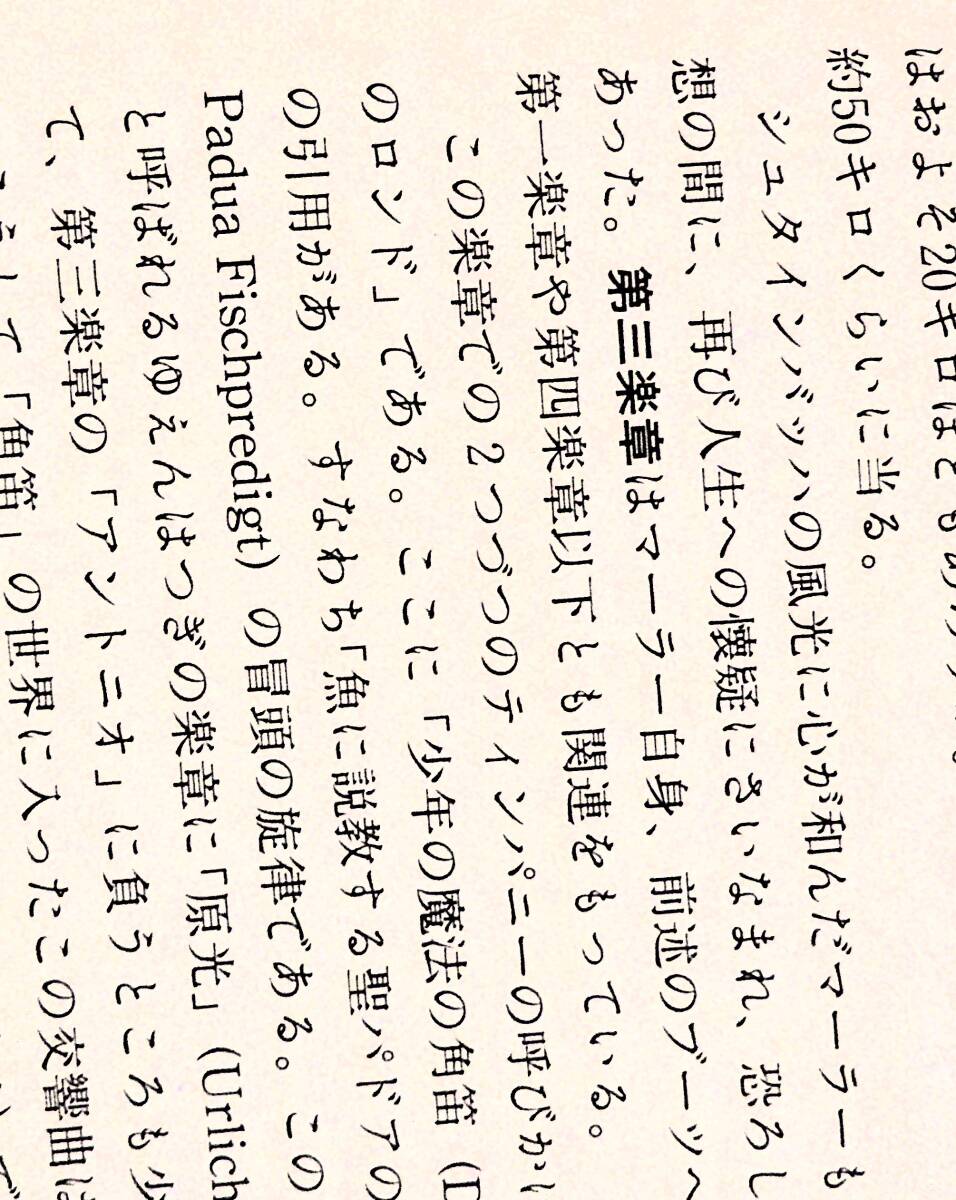 はおよそ20キロほどもあり
約50キロくらいに当る。
シュタインバッハの風光に心が和んだマーラーも
想の間に、再び人生への懐疑にさいなまれ、恐ろし
あった。第三楽章はマーラー自身、前述のブーツへ
第一楽章や第四楽章以下とも関連をもっている。
この楽章での2つづつのティンパニーの呼びかけ
のロンド」である。ここに「少年の魔法の角笛(D
の引用がある。すなわち「魚に説教する聖パドアの
Padua Fischpredigt)の冒頭の旋律である。この
と呼ばれるゆえんはつぎの楽章に「原光」(Urlich
て、第三楽章の「アントニオ」に負うところも少
こうして「角笛」の世界に入ったこの交響曲は